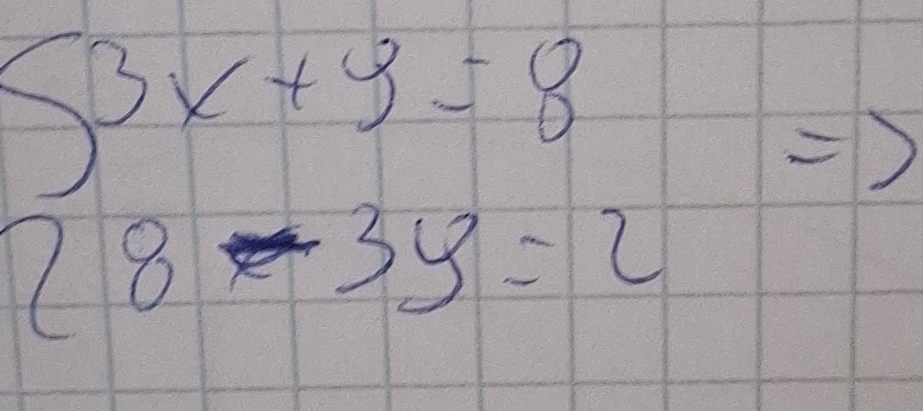 {3x + y = 8
{8 - 3y = 2 =>